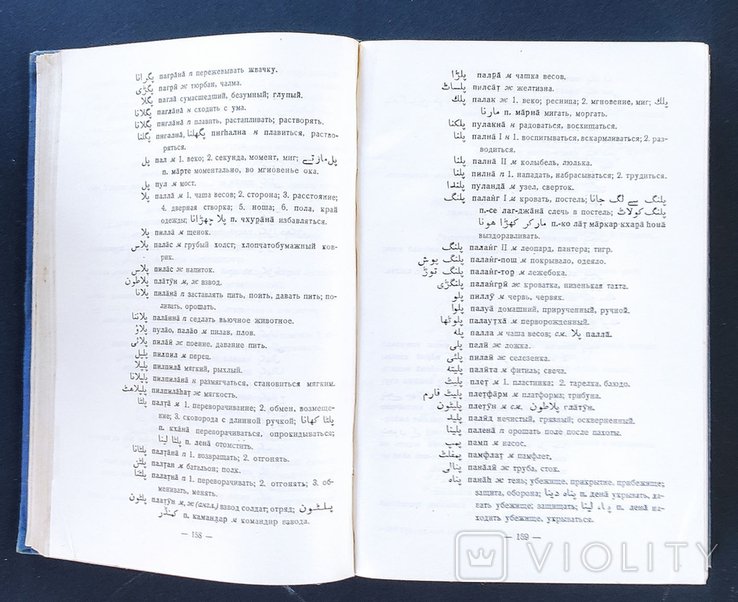 پگرانا пагра̄на̄ п пережевывать жвачку.
پگڑی пагрӣ ж тюрбан, чалма.
پگلا пагла̄ сумасшедший, безумный; глупый.
пагла̄на̄ н сходить с ума.
пигла̄на̄ п плавить, растапливать; растворять.
پگھلنا пигална̄, пигhална н плавиться, раство-
ряться.
پل пал м 1. веко; 2. секунда, момент, миг; پل مارتے
п. ма̄рте моментально, во мгновенье ока.
پل пул м мост.
پلا палла̄ м 1. чаша весов; 2. сторона; 3. расстояние;
4. дверная створка; 5. ноша; 6. пола, край
одежды; پلا چھڑانا п. чхура̄на̄ избавляться.
پلا пилла̄ м щенок.
پلاس пала̄с м грубый холст; хлопчатобумажный ков-
рик.
پلاس пила̄с ж напиток.
پلاٹون пла̄тӯн м, ж взвод.
پلانا пила̄на̄ п заставлять пить, поить, давать пить; по-
ливать, орошать.
پلاننا пала̄нна̄ п седлать вьючное животное.
پلاؤ пула̄о, пала̄о м пилав, плов.
پلائی пила̄ӣ ж поение, давание пить.
پلپل пилпил м перец.
پلپلا пилпила̄ мягкий, рыхлый.
پلپلانا пилпила̄на̄ н размягчаться, становиться мягким.
پلپلاہٹ пилпила̄hат ж мягкость.
پلٹا палта̄ м 1. переворачивание; 2. обмен, возмеще-
ние; 3. сковорода с длинной ручкой; پلٹا کھانا
п. кха̄на̄ переворачиваться, опрокидываться;
پلٹا لینا п. лена̄ отомстить.
پلٹانا палта̄на̄ п 1. возвращать; 2. отгонять.
پلٹن палтан м батальон; полк.
پلٹنا палатна̄ п 1. переворачивать; 2. отгонять; 3. об-
менивать, менять.
پلٹون платӯн м, ж (англ.) взвод солдат; отряд; پلٹون
کمانڈر п. камандар м командир взвода.
— 158 —
پلڑا палра̄ м чашка весов.
پلساٹ пилса̄т ж желтизна.
پلك палак ж 1. веко; ресница; 2. мгновение, миг; پلك
مارنا п. ма̄рна̄ мигать, моргать.
پلکنا пулакна̄ н радоваться, восхищаться.
پلنا пална̄ I н 1. воспитываться, вскармливаться; 2. раз-
водиться.
پلنا пална̄ II м колыбель, люлька.
پلنا пилна̄ п 1. нападать, набрасываться; 2. трудиться.
پلندا пуланда̄ м узел, сверток.
پلنگ паланг I м кровать, постель; پلنگ سے لگ جانا
п.-се лаг-джа̄на̄ слечь в постель; پلنگ کو لات
مار کر کھڑا ہونا п.-ко ла̄т ма̄ркар кхара̄ hона̄
выздоравливать.
پلنگ паланг II м леопард, пантера; тигр.
پلنگ پوش паланг-пош м покрывало, одеяло.
پلنگ توڑ паланг-тор м лежебока.
پلنگڑی палангрӣ ж кроватка, низенькая тахта.
پلو пиллӯ м червь, червяк.
پلوا палуа̄ домашний, прирученный, ручной.
پلوٹھا палаутха̄ м перворожденный.
پله палла м чаша весов; см. پلا палла̄.
پلی палӣ ж ложка.
پلئی пилаӣ ж селезенка.
پلیته палӣта м фитиль; свеча.
پلیٹ плет м 1. пластинка; 2. тарелка, блюдо.
پلیٹ فارم плетфа̄рм м платформа; трибуна.
پلیٹون плетӯн м см. پلاٹون пла̄тӯн.
پلید палӣд нечистый, грязный; оскверненный.
پلینا палена̄ п орошать поле после пахоты.
پمپ памп м насос.
پمفلٹ памфлат м памфлет.
پنالی пана̄лӣ ж труба, сток.
پناہ пана̄h ж тень; убежище, прикрытие, прибежище;
защита, оборона; پناہ دینا п. дена̄ укрывать, да-
вать убежище; защищать; پناہ لینا п. лена̄ на-
ходить убежище, укрываться.
— 159 —
VIOLITY